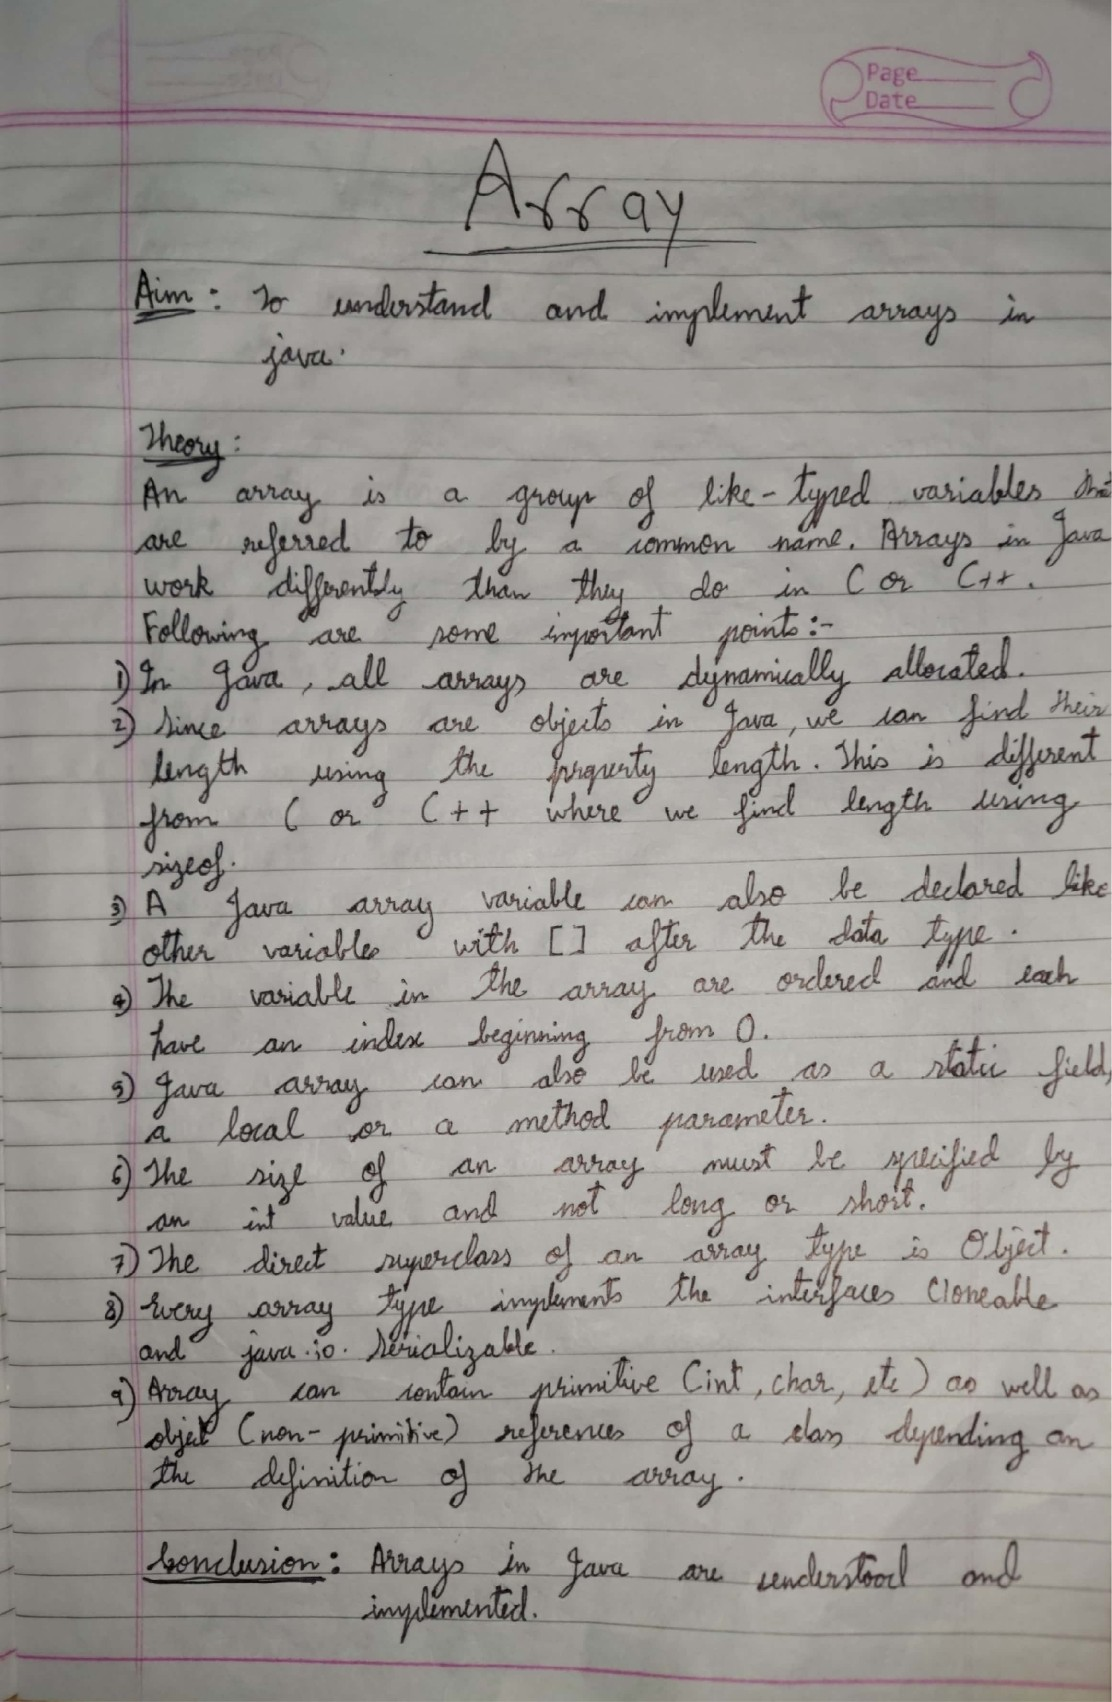 Page
Date
Array
Aim : To understand and implement arrays in
java.
Theory :
An array is a group of like-typed variables that
are referred to by a common name. Arrays in Java
work differently than they do in C or C++.
Following are some important points :-
1) In Java, all arrays are dynamically allocated.
2) Since arrays are objects in Java, we can find their
length using the property length. This is different
from C or C++ where we find length using
sizeof.
3) A Java array variable can also be declared like
other variables with [] after the data type.
4) The variable in the array are ordered and each
have an index beginning from 0.
5) Java array can also be used as a static field,
a local or a method parameter.
6) The size of an array must be specified by
an int value and not long or short.
7) The direct superclass of an array type is Object.
8) Every array type implements the interfaces Cloneable
and java.io.Serializable.
9) Array can contain primitive (int, char, etc) as well as
object (non-primitive) references of a class depending on
the definition of the array.
Conclusion : Arrays in Java are understood and
implemented.